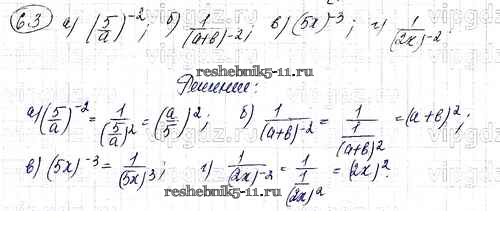 6.3 а) (5/a)^-2; б) 1/(a+b)^-2; в) (5x)^-3; г) 1/(2x)^-2.
reshebnik5-11.ru
Решение:
а) (5/a)^-2 = 1/(5/a)^2 = (a/5)^2; б) 1/(a+b)^-2 = 1/(1/(a+b)^2) = (a+b)^2;
в) (5x)^-3 = 1/(5x)^3; г) 1/(2x)^-2 = 1/(1/(2x)^2) = (2x)^2.
reshebnik5-11.ru